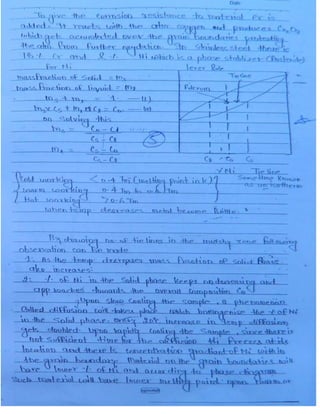 Date
To give the corrosion resistance to material Cr is
added. It reacts with the atm oxygen and produces Cr2O3
which gets accumulated over the grain boundaries protecting
the atm from further oxydation. In Stainless steel there is
18% Cr and 8% Ni which is a phase stabilizer (Austenite)
For Ni
Lever Rule
mass fraction of Solid = ms
Tie line
mass fraction of liquid = mL
Fulcrum
ms + mL = 1 — (1)
ms x Cs + mL x CL = Co
on solving this
ms = Co - CL
Cs - CL
mL = Cs - Co
Cs - CL
CL Co Cs
% Ni
Tie line
Cold working < 0.4 Tm (melting point in k)
Something known
warm working 0.4 Tm to 0.6 Tm
as isotherm
Hot working > 0.6 Tm
when temp decreases metal become Brittle.
By drawing no. of tie lines in the mushy zone following
observation can be made
1. As the temp decreases mass fraction of solid phase
also increases
2. % of Ni in the Solid phase keeps on decreasing and
approaches towards the overall composition Co
Upon slow cooling the sample, a phenomenon
called diffusion will takes place which homogenise the % of Ni
in the solid phase. Every 20°C increase in temp diffusion
gets doubled. Upon rapidly cooling the Sample, since there is
not sufficient time for the diffusion Ni freezes at its
location and there is concentration gradient of Ni with in
the grain boundary. Material on the grain boundaries will
have lower % of Ni and according to phase diagram
Such material will have lower melting point upon